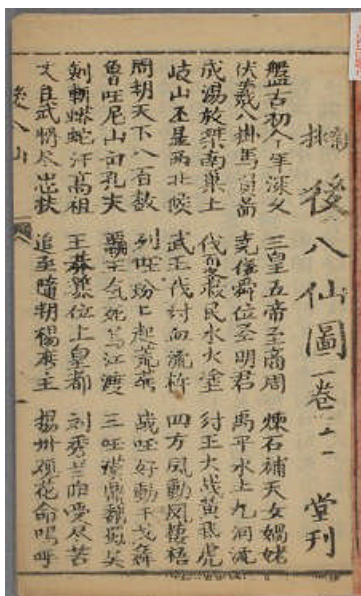 新排
後八仙圖一卷 堂刊
盤古初分年深久 三皇五帝至商周 煉石補天女媧姥
伏羲八掛馬負啚 堯後舜位圣明君 禹平水土九洞流
成湯放桀南巢土 伐夏民水火塗 紂王大战黃飛虎
岐山丕星西北候 武王伐紂血流杵 四方風動鳳棲梧
周朝天下八百数 列旺上起荒蕪 战旺好動干戈舞
魯旺尼山有孔夫 霸王気死烏江渡 三旺鼎魏蜀吳
剣斬蟒蛇汗高祖 王莽篡位上皇都 刘秀受尽苦
文臣武將尽忠扶 追至隋朝楊廣主 揚州碩花命嗚呼
後八仙